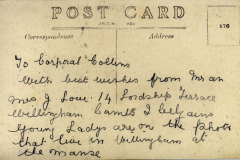 POST CARD
Correspondence
Address
176
To Corporal Collins
With best wishes from Mr an
Mrs J Love. 14 Lordship Terrace
Willingham Cambs I
Young Ladys are on the Photo
that live in Willingham at
the manse